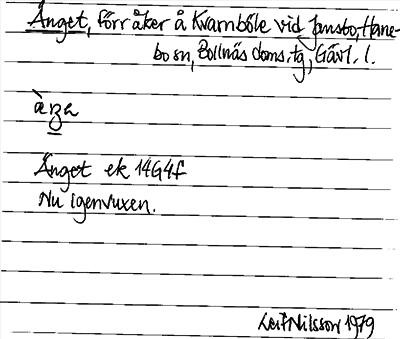 Änget, förr åker å Kvarnböle vid Jansbo, Hane-
bo sn, Bollnäs doms.tg, Gävl. l.
Änget ek 14G4f
Nu igenvuxen.
Leif Nilsson 1979